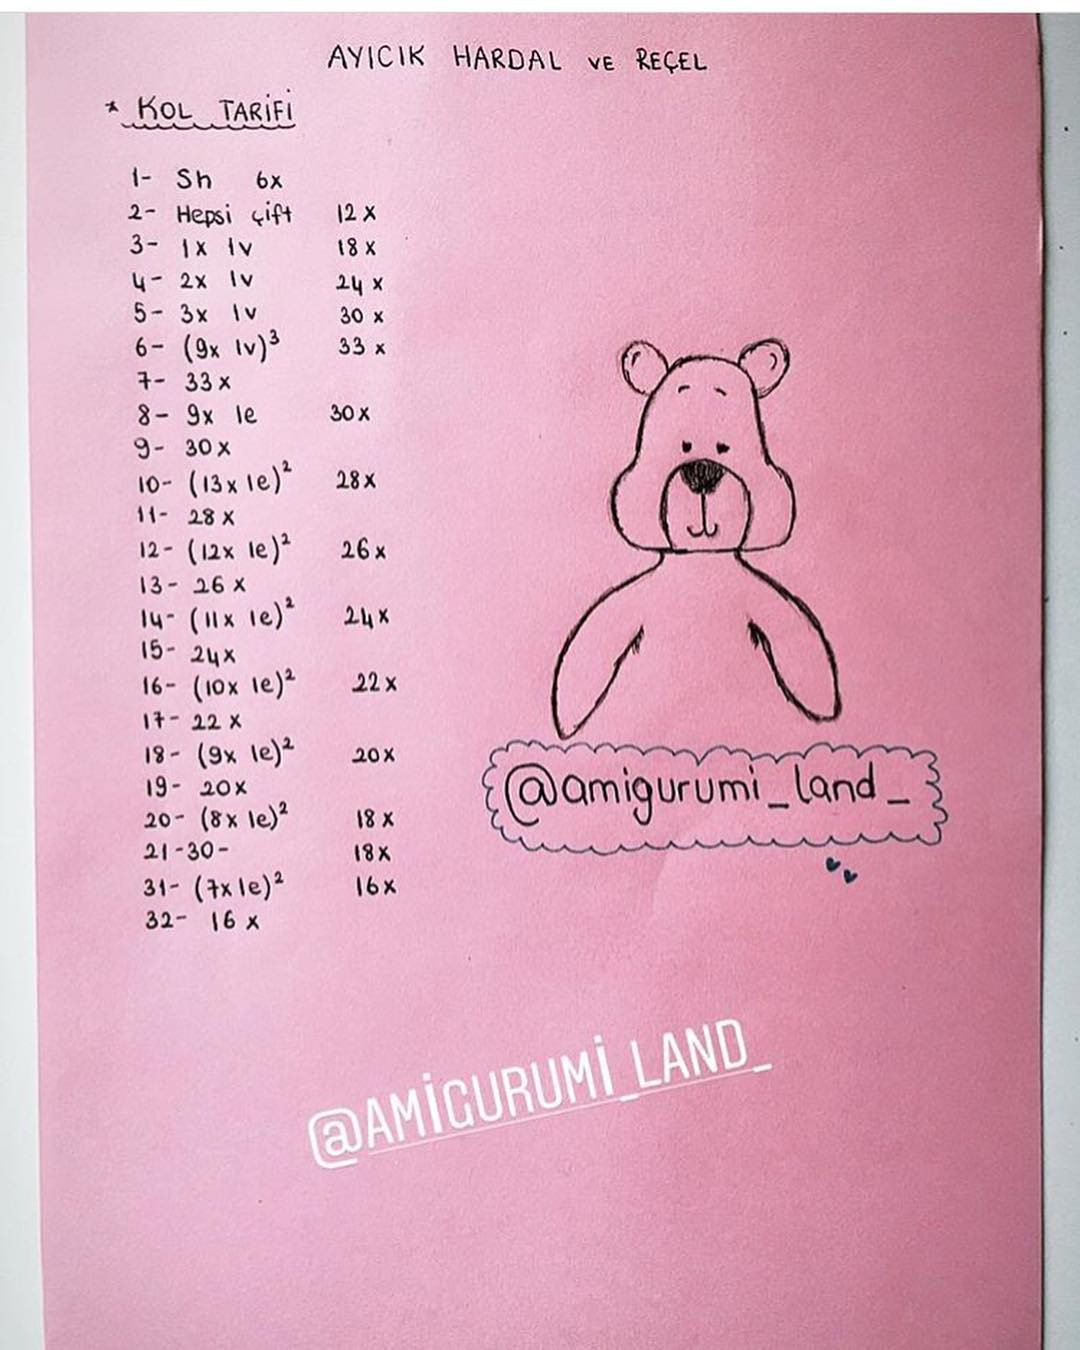 AYICIK HARDAL VE REÇEL
* KOL TARİFİ
1- Sh 6x
2- Hepsi çift 12x
3- 1x 1v 18x
4- 2x 1v 24x
5- 3x 1v 30x
6- (9x 1v)³ 33x
7- 33x
8- 9x 1e 30x
9- 30x
10- (13x 1e)² 28x
11- 28x
12- (12x 1e)² 26x
13- 26x
14- (11x 1e)² 24x
15- 24x
16- (10x 1e)² 22x
17- 22x
18- (9x 1e)² 20x
19- 20x
20- (8x 1e)² 18x
21-30- 18x
31- (7x1e)² 16x
32- 16x
@amigurumi_land_
@AMİGURUMİ_LAND_